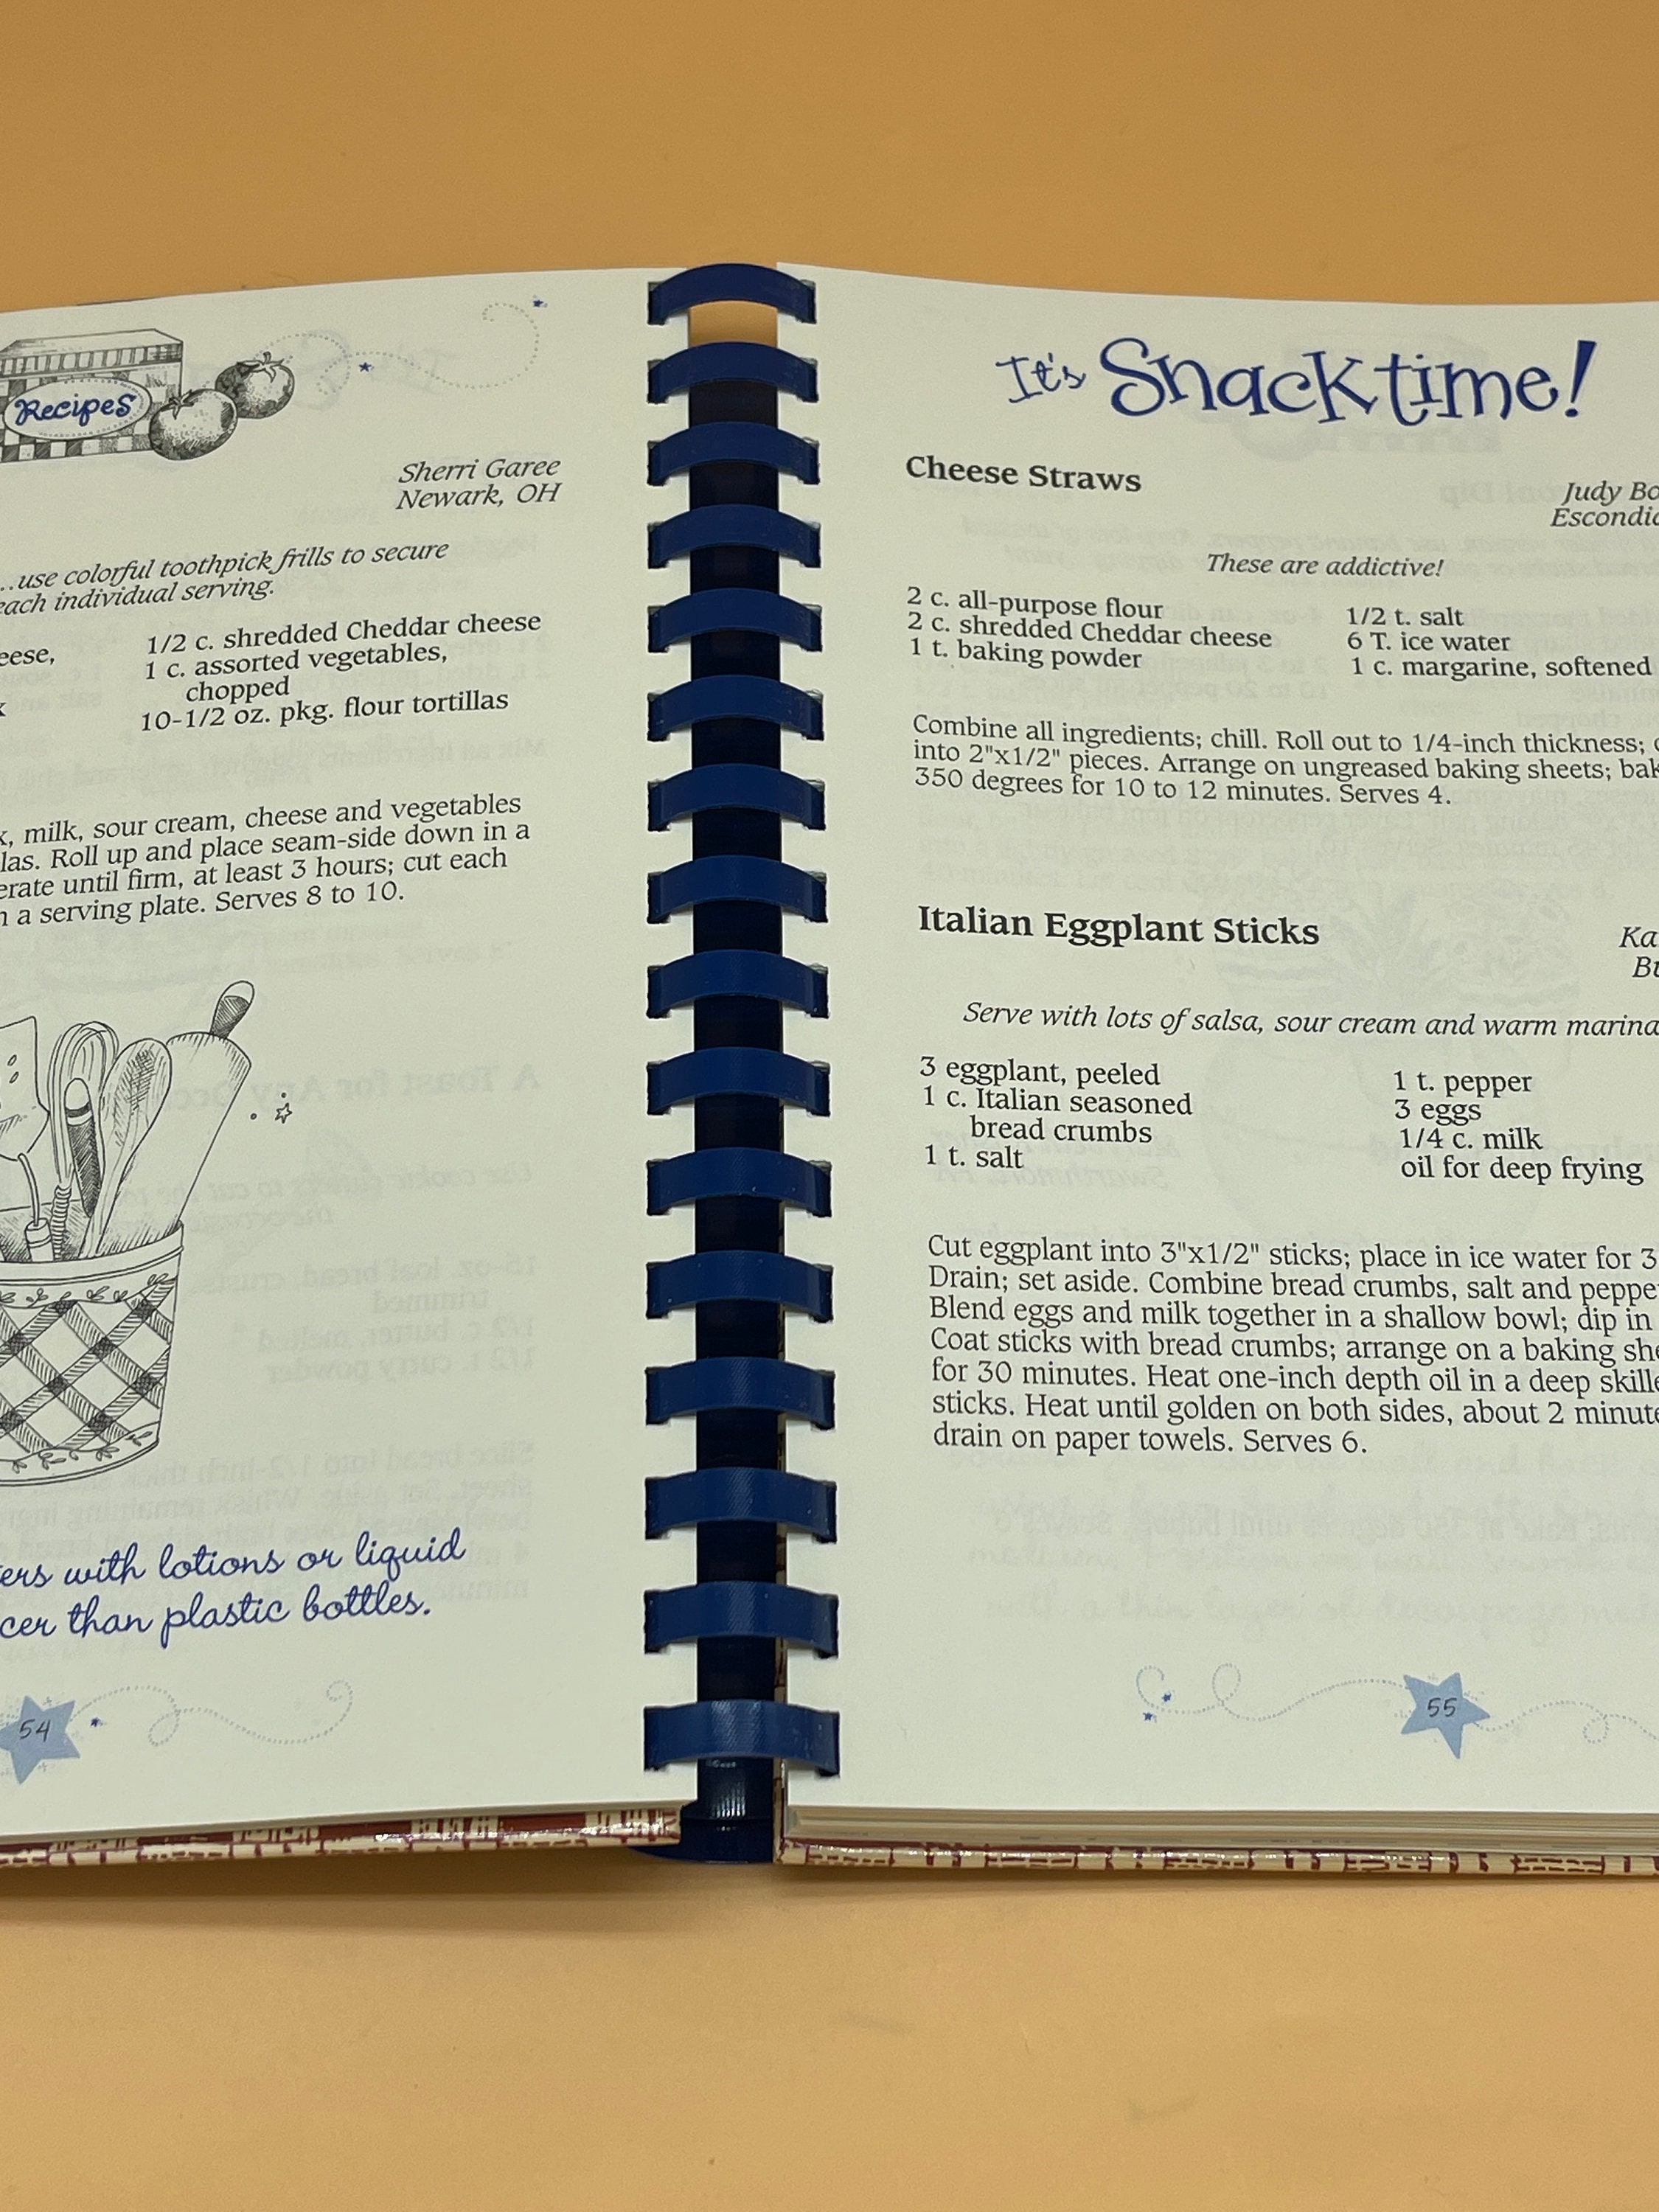 Recipes
Sherri Garee
Newark, OH
...use colorful toothpick frills to secure
each individual serving.
1/2 c. shredded Cheddar cheese
1 c. assorted vegetables,
chopped
10-1/2 oz. pkg. flour tortillas
milk, sour cream, cheese and vegetables
Roll up and place seam-side down in a
until firm, at least 3 hours; cut each
a serving plate. Serves 8 to 10.
with lotions or liquid
than plastic bottles.
54
It's Snack time!
Cheese Straws
Judy
These are addictive!
2 c. all-purpose flour
2 c. shredded Cheddar cheese
1 t. baking powder
1/2 t. salt
6 T. ice water
1 c. margarine, softened
Combine all ingredients; chill. Roll out to 1/4-inch thickness;
into 2"x1/2" pieces. Arrange on ungreased baking sheets;
350 degrees for 10 to 12 minutes. Serves 4.
Italian Eggplant Sticks
Serve with lots of salsa, sour cream and warm
3 eggplant, peeled
1 c. Italian seasoned
bread crumbs
1 t. salt
1 t. pepper
3 eggs
1/4 c. milk
oil for deep frying
Cut eggplant into 3"x1/2" sticks; place in ice water for
Drain; set aside. Combine bread crumbs, salt and
Blend eggs and milk together in a shallow bowl; dip in
Coat sticks with bread crumbs; arrange on a baking
for 30 minutes. Heat one-inch depth oil in a deep
sticks. Heat until golden on both sides, about 2
drain on paper towels. Serves 6.
55